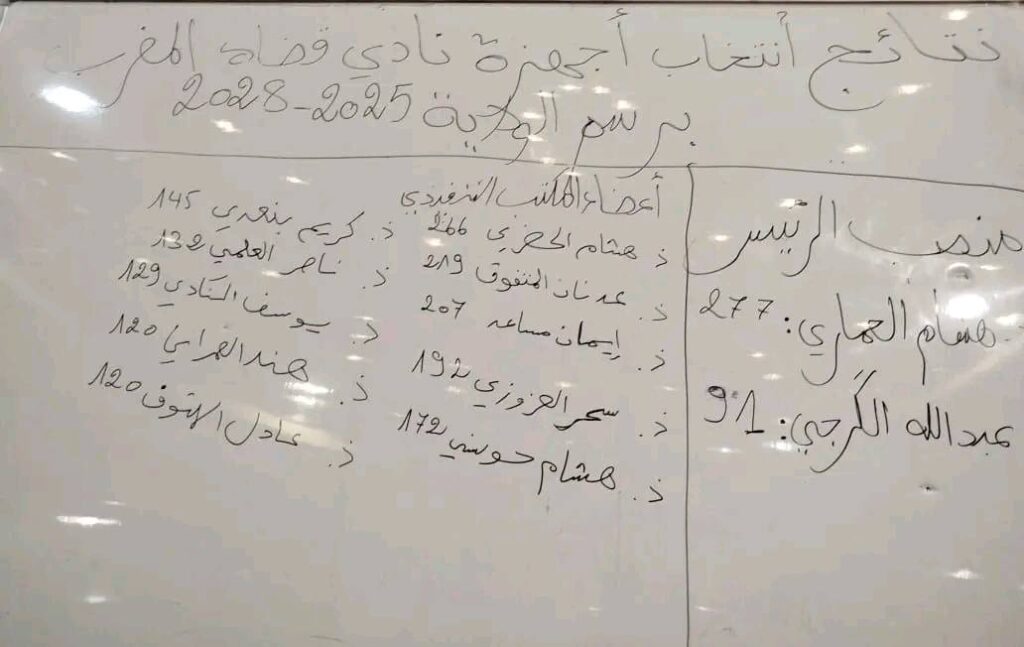 نتائج أنتخاب أجهزة نادي قضاة المغرب
برسم الولاية 2025-2028
منصب الرئيس
هشام العماري: 277
عبد الله الگرجي: 91
أعضاء المكتب التنفيذي
ذ هشام الحضري 266
ذ. عدنان المتفوق 219
ذ. إيمان مساعد 207
ذ. سحر العزوزي 192
ذ. هشام حوسني 172
ذ. كريم بنعدي 145
ذ. ناصر العلمي 132
ذ. يوسف 129
ذ. هند العمراني 120
ذ. عادل 120